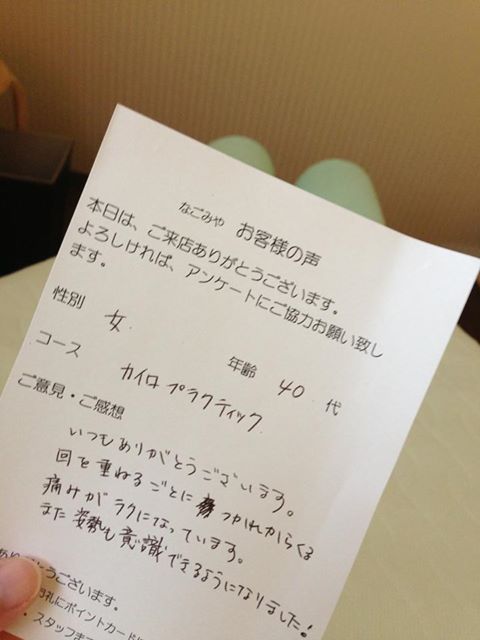 なごみや お客様の声
本日は、ご来店ありがとうございます。
よろしければ、アンケートにご協力お願い致し
ます。
性別 女. 年齢 40 代
コース カイロプラクティック.
ご意見・ご感想
いつもありがとうございます。
回を重ねるごとに つかれからくる
痛みがラクになっています。
また姿勢も意識できるようになりました!
あり とうございます。
礼にポイントカード
・スタッフま